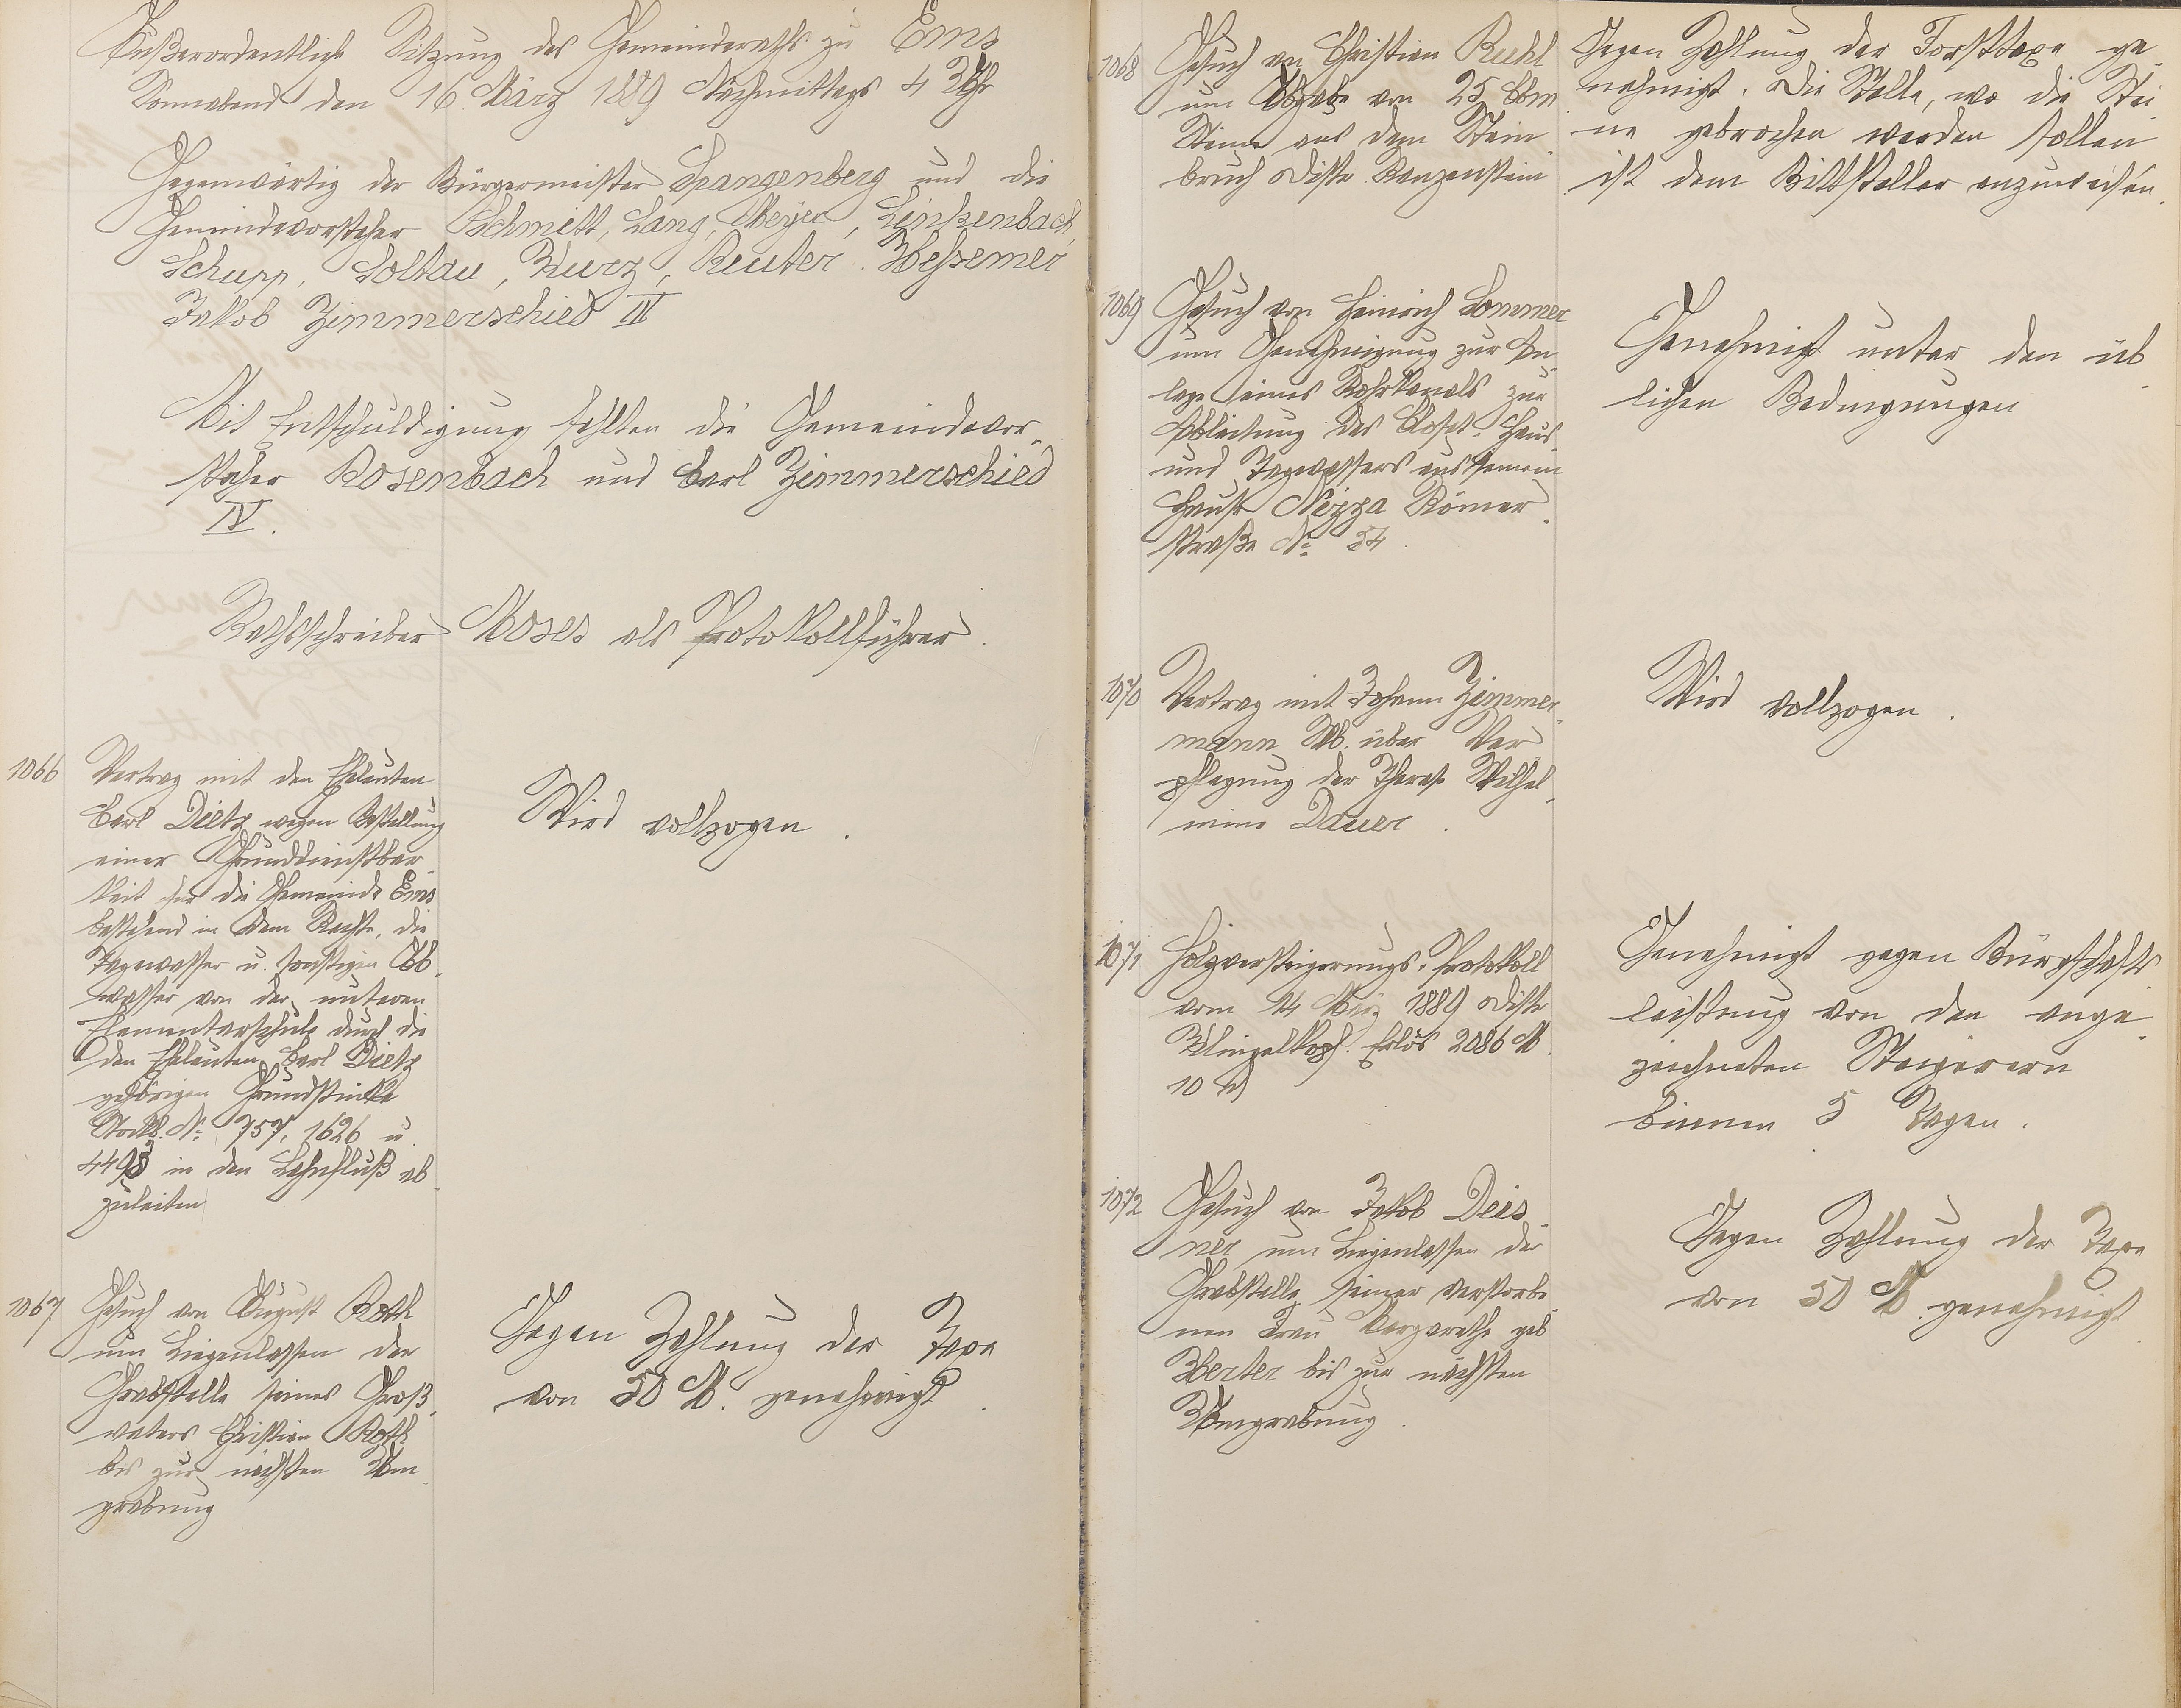 Außerordentliche Sitzung des Gemeinderaths zu Ems
Sonnabend den 16 März 1889 Nachmittags 4 Uhr
Gegenwärtig der Bürgermeister Spangenberg und die
Gemeindevorsteher Schmitt, Lang, Meyer, Linkenbach,
Schupp, Soltau, Kurz, Reuter. Heßemer
Jakob Zimmerschied IV
Mit Entschuldigung fehlten die Gemeindevor-
steher Rosenbach und Carl Zimmerschied
IV.
Rathschreiber Moses als Protokollführer.
1066 Vertrag mit den Eheleuten
Carl Dietz wegen Bestellung
einer Grunddienstbar-
keit für die Gemeinde Ems
bestehend in dem Rechte, die
Tagewasser u. sonstigen Ab-
wasser von der unteren
Elementarschule durch die
den Eheleuten Carl Dietz
gehörigen Grundstücke
Stockb. No 757, 1626 u.
4498 in den Lahnfluß ab-
zuleiten
Wird vollzogen.
1067 Gesuch von August Roth
um Liegenlassen der
Grabstelle seines Groß-
vaters Christian Roth
bis zur nächsten Um-
grabung
Gegen Zahlung der Taxe
von 50 M. genehmigt.
1068 Gesuch von Christian Ruhl
um Abgabe von 25 Cbm
Steine aus dem Stein-
bruch Distr. Kanzenstein
Gegen Zahlung der Forsttaxe ge-
nehmigt. Die Stelle, wo die Stei-
ne gebrochen werden sollen
ist dem Bittsteller anzuweisen.
1069 Gesuch von Heinrich Sommer
um Genehmigung zur An-
lage eines Rohrkanals zur
Ableitung des Closet-, Haus-
und Tagewassers aus seinem
Hause Nizza Römer-
straße No 54.
Genehmigt unter den üb-
lichen Bedingungen
1070 Vertrag mit Johann Zimmer-
mann Wb. über Ver-
pflegung der Therese Wilhel-
mine Dauer.
Wird vollzogen.
1071 Holzversteigerungs-Protokoll
vom 14 März 1889 Distr.
Klingelkopf. Erlös 2086 M.
10 d
Genehmigt gegen Bürgschafts-
leistung von den ange-
zeichneten Steigerern
binnen 5 Tagen.
1072 Gesuch von Jakob Deis-
ner um Liegenlassen der
Grabstelle seiner verstorbe-
nen Frau Margarethe geb
Herter bis zur nächsten
Umgrabung.
Gegen Zahlung der Taxe
von 50 M. genehmigt.